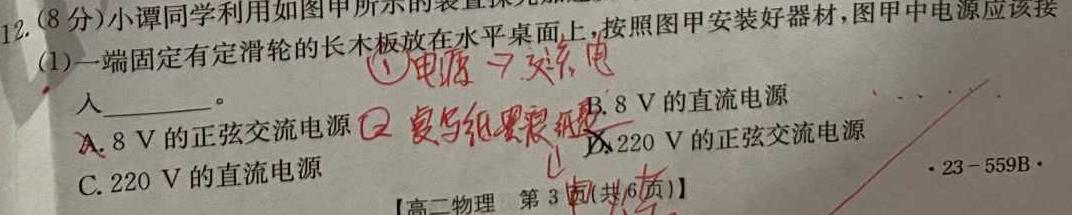 12.(8分)小谭同学利用如图甲所示的装置探究加速
(1)一端固定有定滑轮的长木板放在水平桌面上,按照图甲安装好器材,图甲中电源应该接
①电源→交流电
入________。
A. 8 V的正弦交流电源
B. 8 V的直流电源
② 复写纸
C. 220 V的直流电源
D. 220 V的正弦交流电源
·23-559B·
【高二物理 第3页(共6页)】